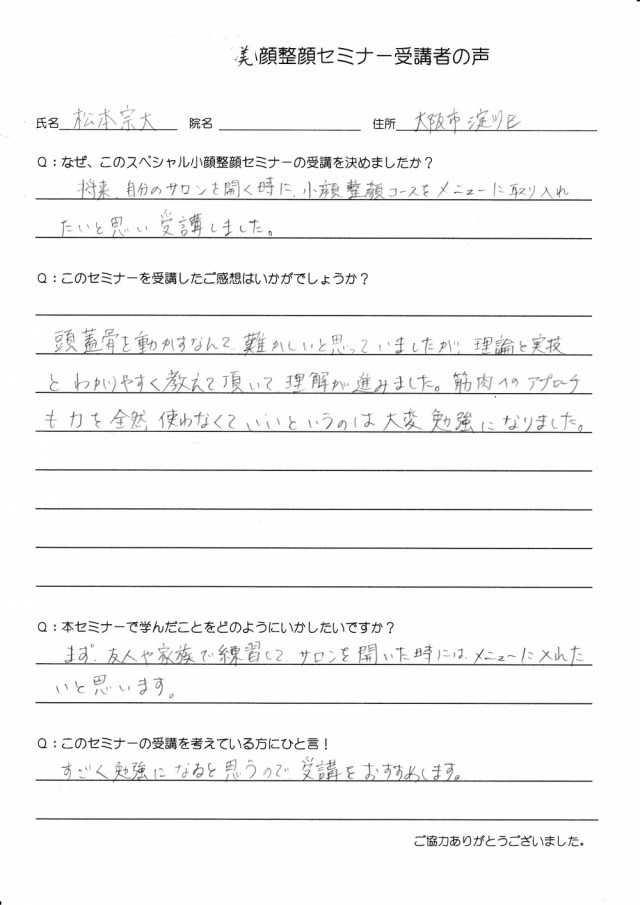 美顔整顔セミナー受講者の声
氏名 松本宗大 院名 住所 大阪市淀川区
Q：なぜ、このスペシャル小顔整顔セミナーの受講を決めましたか？
将来、自分のサロンを開く時に、小顔整顔コースをメニューに取り入れ
たいと思い受講しました。
Q：このセミナーを受講したご感想はいかがでしょうか？
頭蓋骨を動かすなんて、難かしいと思っていましたが、理論と実技
とわかりやすく教えて頂いて、理解が進みました。筋肉へのアプローチ
も力を全然使わなくていいというのは大変勉強になりました。
Q：本セミナーで学んだことをどのようにいかしたいですか？
まず、友人や家族で練習して、サロンを開いた時には、メニューに入れた
いと思います。
Q：このセミナーの受講を考えている方にひと言！
すごく勉強になると思うので、受講をおすすめします。
ご協力ありがとうございました。